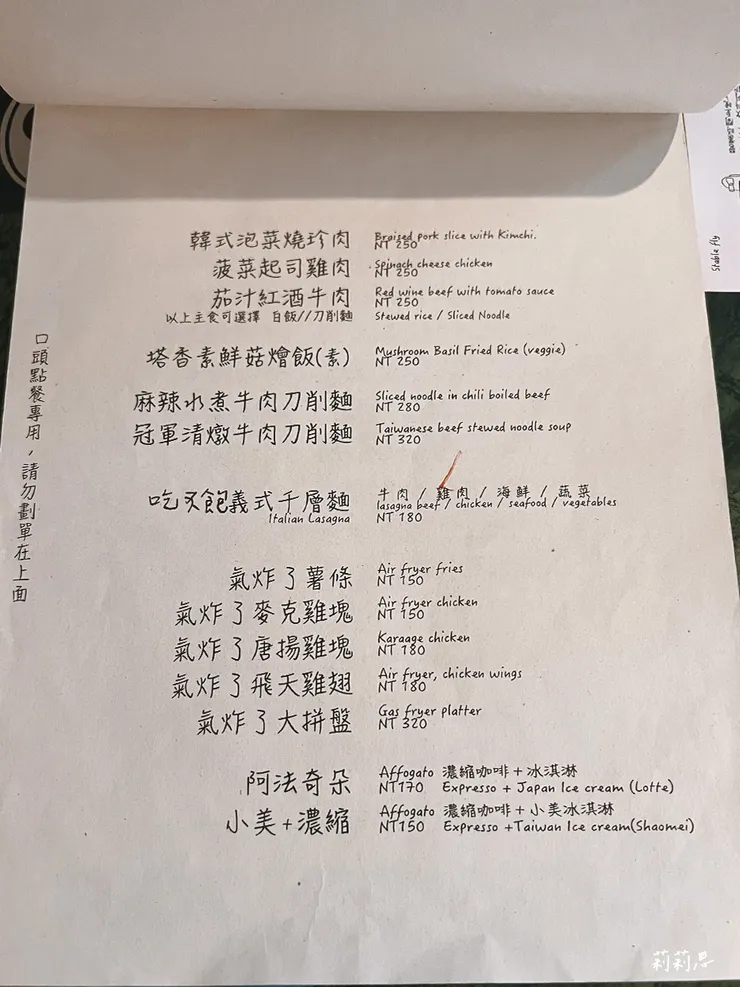 韓式泡菜燒珍肉
Braised pork slice with Kimchi.
NT 250
菠菜起司雞肉
Spinach cheese chicken
NT 250
茄汁紅酒牛肉
Red wine beef with tomato sauce
NT 250
以上主食可選擇 白飯//刀削麵
Stewed rice / Sliced Noodle
塔香素鮮菇燴飯(素)
Mushroom Basil Fried Rice (veggie)
NT 250
麻辣水煮牛肉刀削麵
Sliced noodle in chili boiled beef
NT 280
冠軍清燉牛肉刀削麵
Taiwanese beef stewed noodle soup
NT 320
吃又飽義式千層麵
Italian Lasagna
牛肉 / 雞肉 / 海鮮 / 蔬菜
lasagna beef / chicken / seafood / vegetables
NT 180
氣炸了薯條
Air fryer fries
NT 150
氣炸了麥克雞塊
Air fryer chicken
NT 150
氣炸了唐揚雞塊
Karaage chicken
NT 180
氣炸了飛天雞翅
Air fryer, chicken wings
NT 180
氣炸了大拼盤
Gas fryer platter
NT 320
阿法奇朵
Affogato 濃縮咖啡+冰淇淋
NT170 Expresso + Japan Ice cream (Lotte)
小美+濃縮
Affogato 濃縮咖啡+小美冰淇淋
NT150 Expresso +Taiwan Ice cream(Shaomei)
口頭點餐專用,請勿劃單在上面
Stable fly
莉莉思